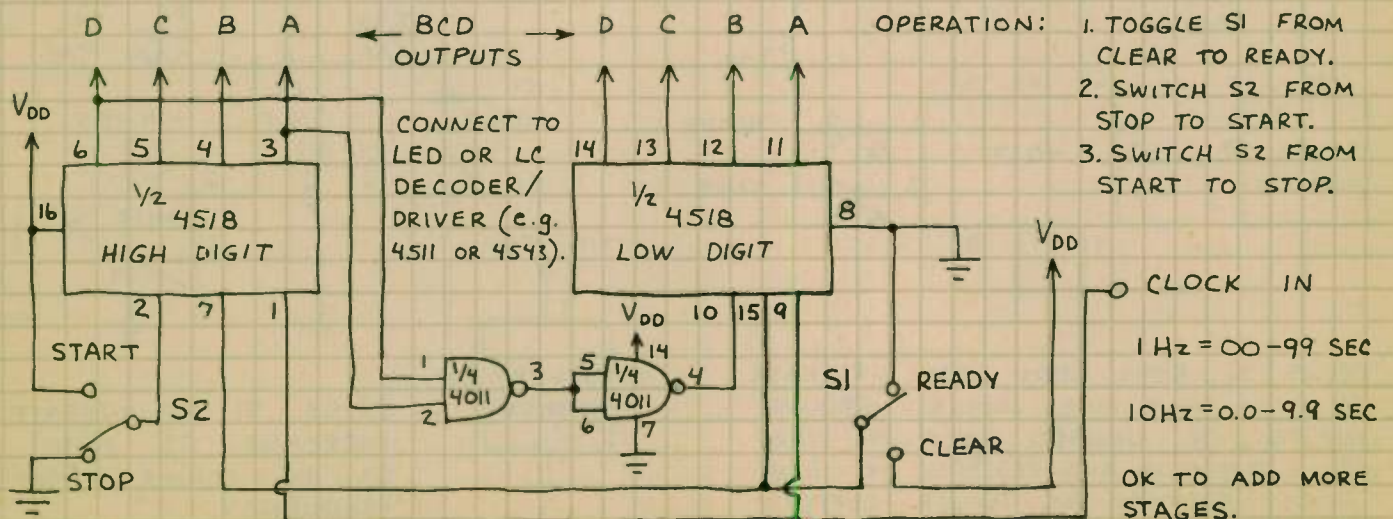 D C B A
← BCD →
OUTPUTS
D C B A
OPERATION: 1. TOGGLE S1 FROM
CLEAR TO READY.
2. SWITCH S2 FROM
STOP TO START.
3. SWITCH S2 FROM
START TO STOP.
VDD
6 5 4 3
16
1/2
4518
HIGH DIGIT
2 7 1
CONNECT TO
LED OR LC
DECODER/
DRIVER (e.g.
4511 OR 4543).
14 13 12 11
1/2
4518
LOW DIGIT
8
10 15 9
VDD
START
S2
STOP
1
2
1/4
4011
3
VDD
14
5
6
1/4
4011
4
7
S1
READY
CLEAR
CLOCK IN
1 Hz = 00-99 SEC
10 Hz = 0.0-9.9 SEC
OK TO ADD MORE
STAGES.